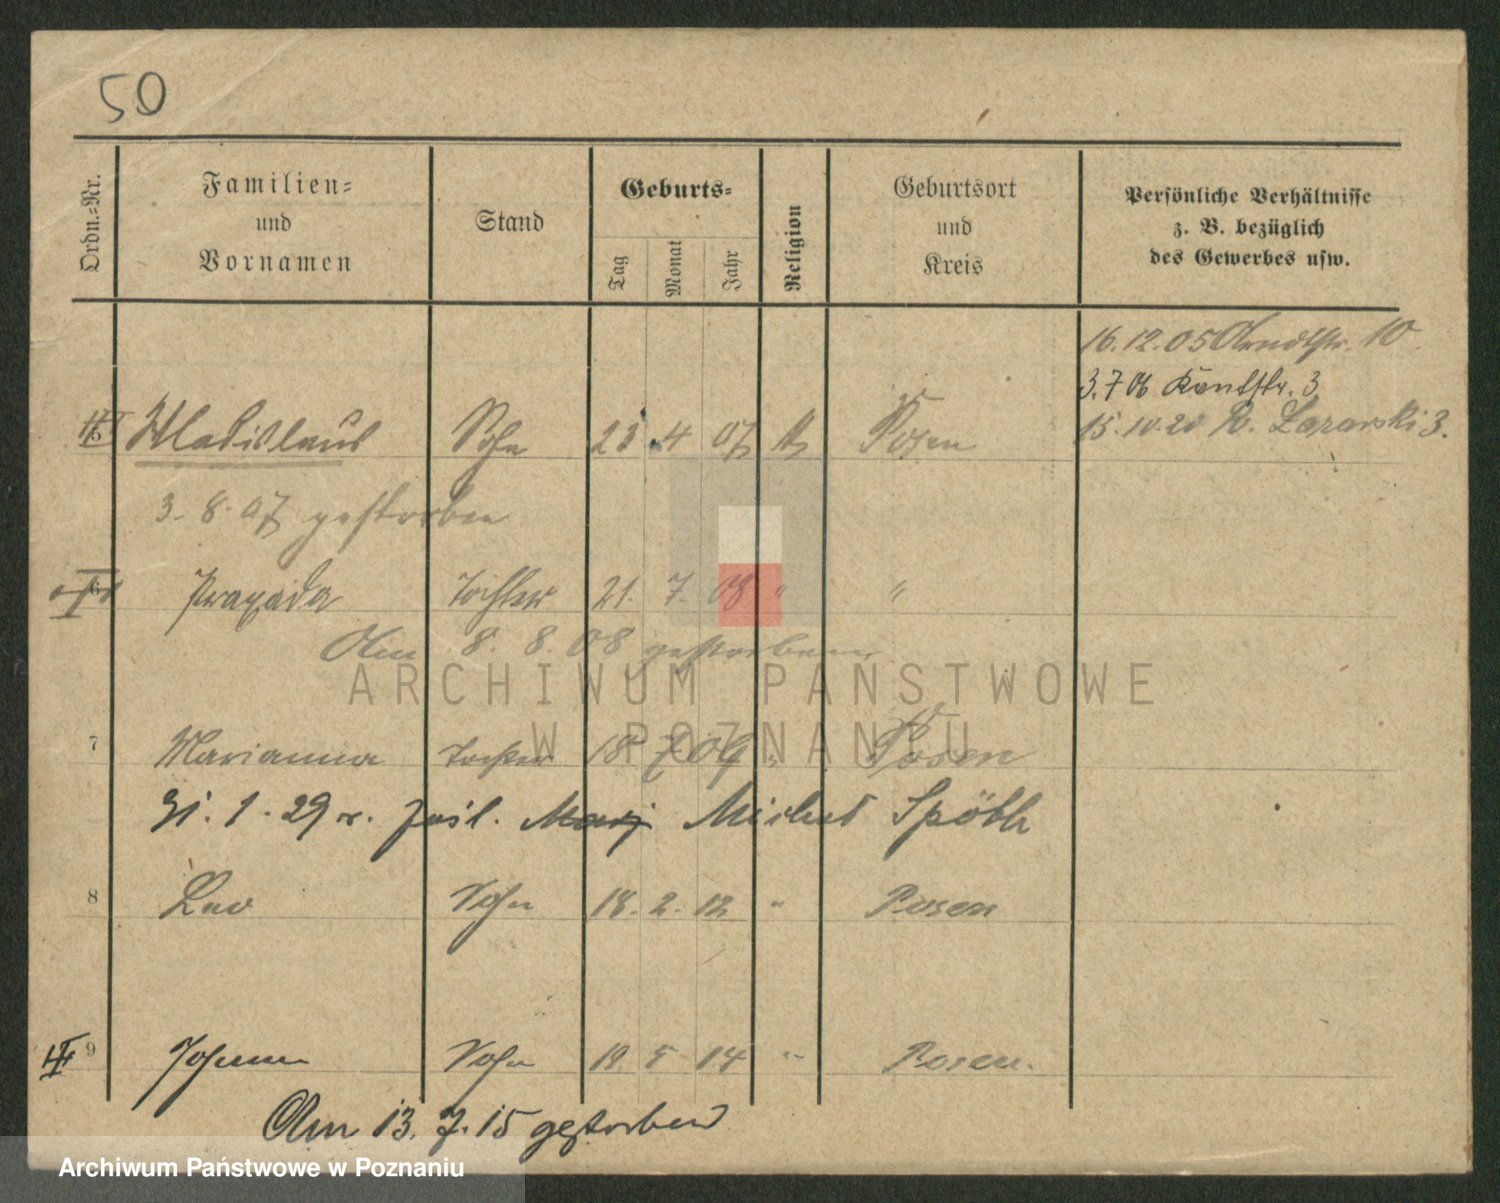 50
Ordn.-Nr.
Familien- und Vornamen
Stand
Geburts-
Tag Monat Jahr
Religion
Geburtsort und Kreis
Persönliche Verhältnisse z. B. bezüglich des Gewerbes usw.
16.12.05 Arndtstr. 10
3.7.06 Kantstr. 3
15.10.20 Lazarski 3.
5 Wladislaus Sohn 23 4 07 Posen
3. 8. 07 gestorben
6 Praxeda Tochter 21. 7. 08 " "
Am 8. 8. 08 gestorben
7 Marianna Tochter 18 7 09 " Posen
31. 1. 29 Michael
8 Leo Sohn 18. 2. 12 " Posen
9 Johann Sohn 19. 5 14 " Posen.
Am 13. 7. 15 gestorben
ARCHIWUM PAŃSTWOWE
W POZNANIU
Archiwum Państwowe w Poznaniu